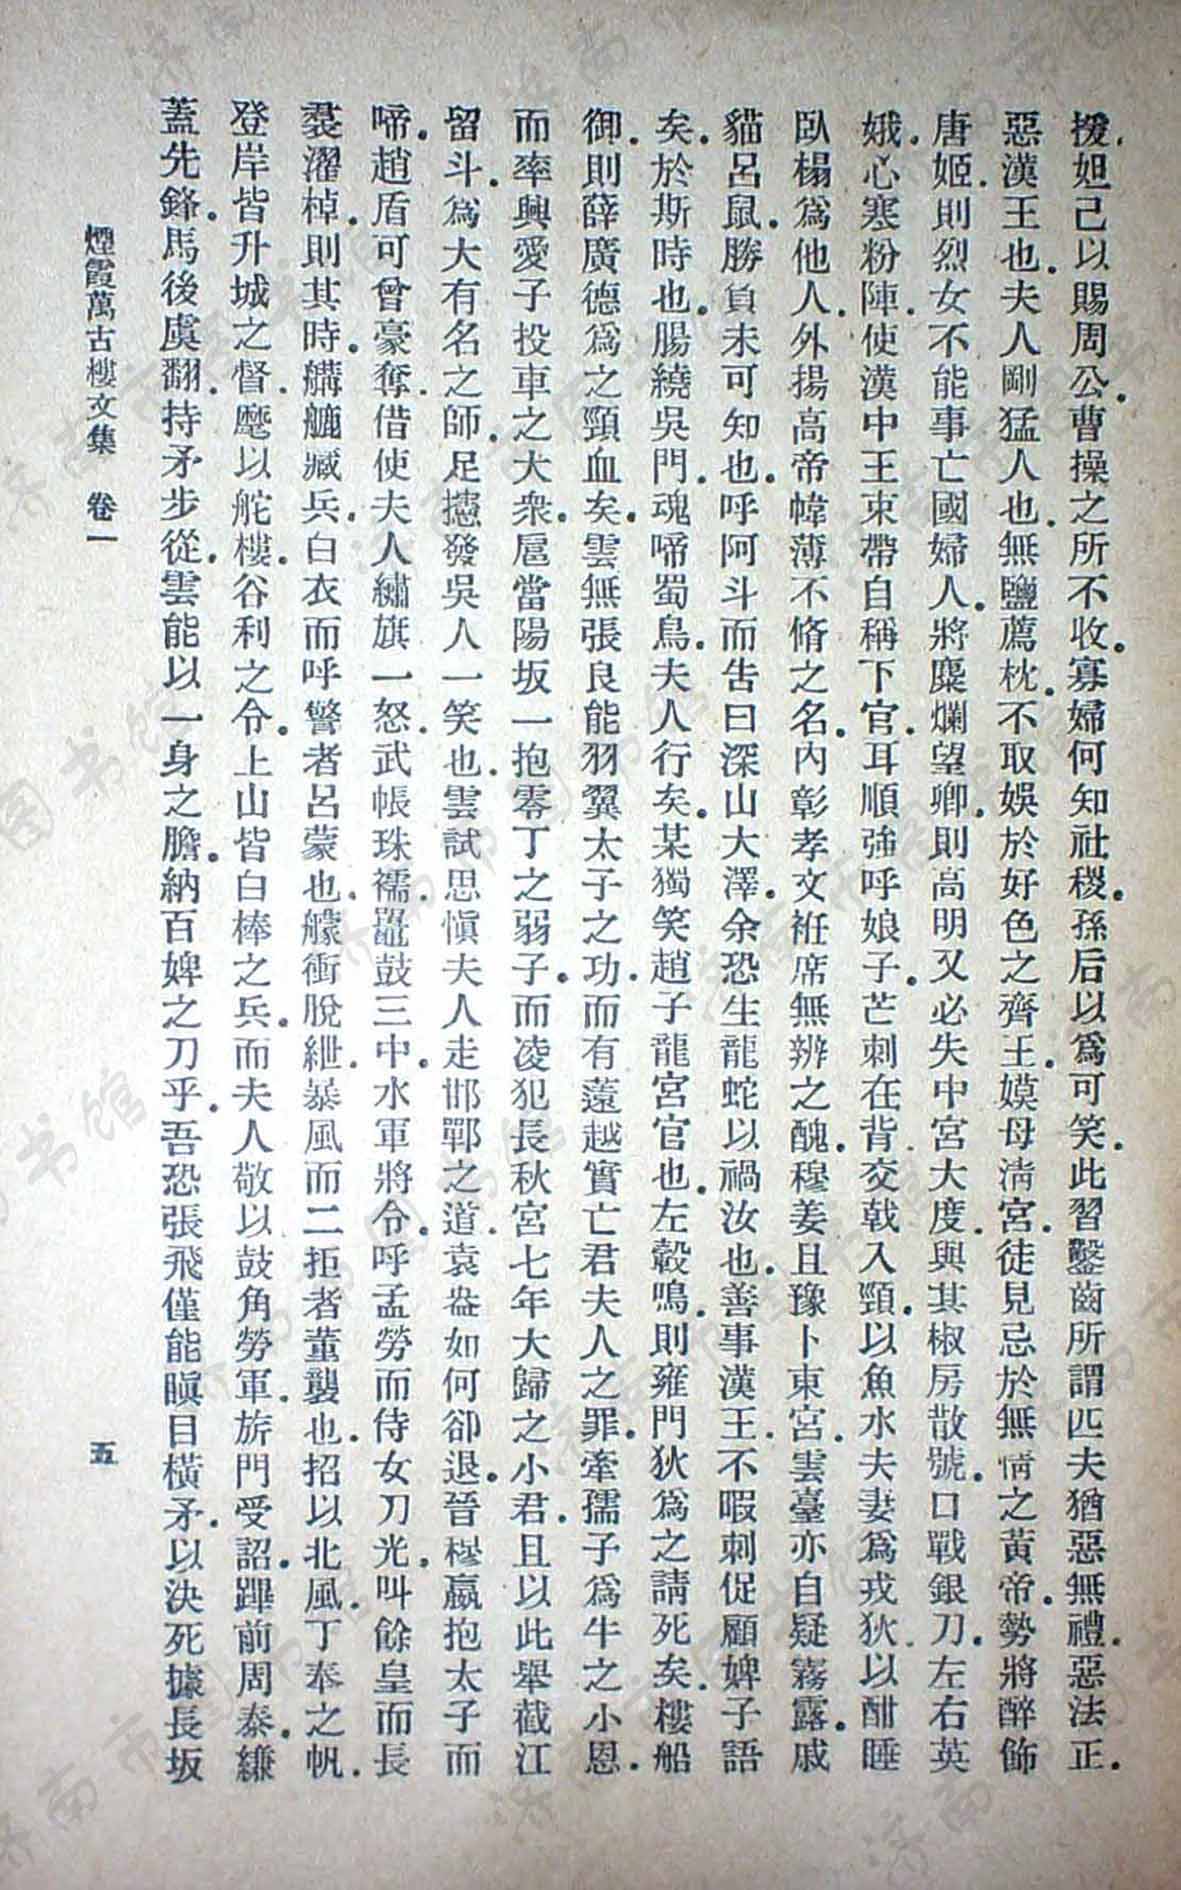 援妲己以賜周公曹操之所不收寡婦何知社稷孫后以爲可笑此習鑿齒所謂匹夫猶惡無禮惡法正
惡漢王也夫人剛猛人也無鹽薦枕不取娛於好色之齊王嫫母淸宮徒見忌於無情之黃帝勢將醉飾
唐姬則烈女不能事亡國婦人將麋爛望卿則高明又必失中宮大度與其椒房散號口戰銀刀左右英
娥心寒粉陣使漢中王束帶自稱下官耳順強呼娘子芒刺在背交戟入頸以魚水夫妻爲戎狄以酣睡
臥榻爲他人外揚高帝幃薄不脩之名內彰孝文袵席無辨之醜穆姜且豫卜東宮雲臺亦自疑霧露戚
貓呂鼠勝負未可知也呼阿斗而告曰深山大澤余恐生龍蛇以禍汝也善事漢王不暇刺促顧婢子語
矣於斯時也腸繞吳門魂啼蜀鳥夫人行矣某獨笑趙子龍宮官也左轂鳴則雍門狄爲之請死矣樓船
御則薛廣德爲之頸血矣雲無張良能羽翼太子之功而有薳越實亡君夫人之罪牽孺子爲牛之小恩
而率興愛子投車之大衆扈當陽坂一抱零丁之弱子而凌犯長秋宮七年大歸之小君且以此舉截江
留斗爲大有名之師足攇發吳人一笑也雲試思愼夫人走邯鄲之道袁盎如何卻退晉穆嬴抱太子而
啼趙盾可曾豪奪借使夫人繡旗一怒武帳珠襦鼉鼓三中水軍將令呼孟勞而侍女刀光叫餘皇而長
裠濯棹則其時艤艫藏兵白衣而呼警者呂蒙也艨衝脫紲暴風而二拒者董襲也招以北風丁奉之帆
登岸皆升城之督麾以舵樓谷利之令上山皆白棒之兵而夫人敬以鼓角勞軍旂門受詔蹕前周泰縑
蓋先鋒馬後虞翻持矛步從雲能以一身之膽納百婢之刀乎吾恐張飛僅能瞋目橫矛以決死據長坂
煙霞萬古樓文集 卷一 五
济南市图书馆